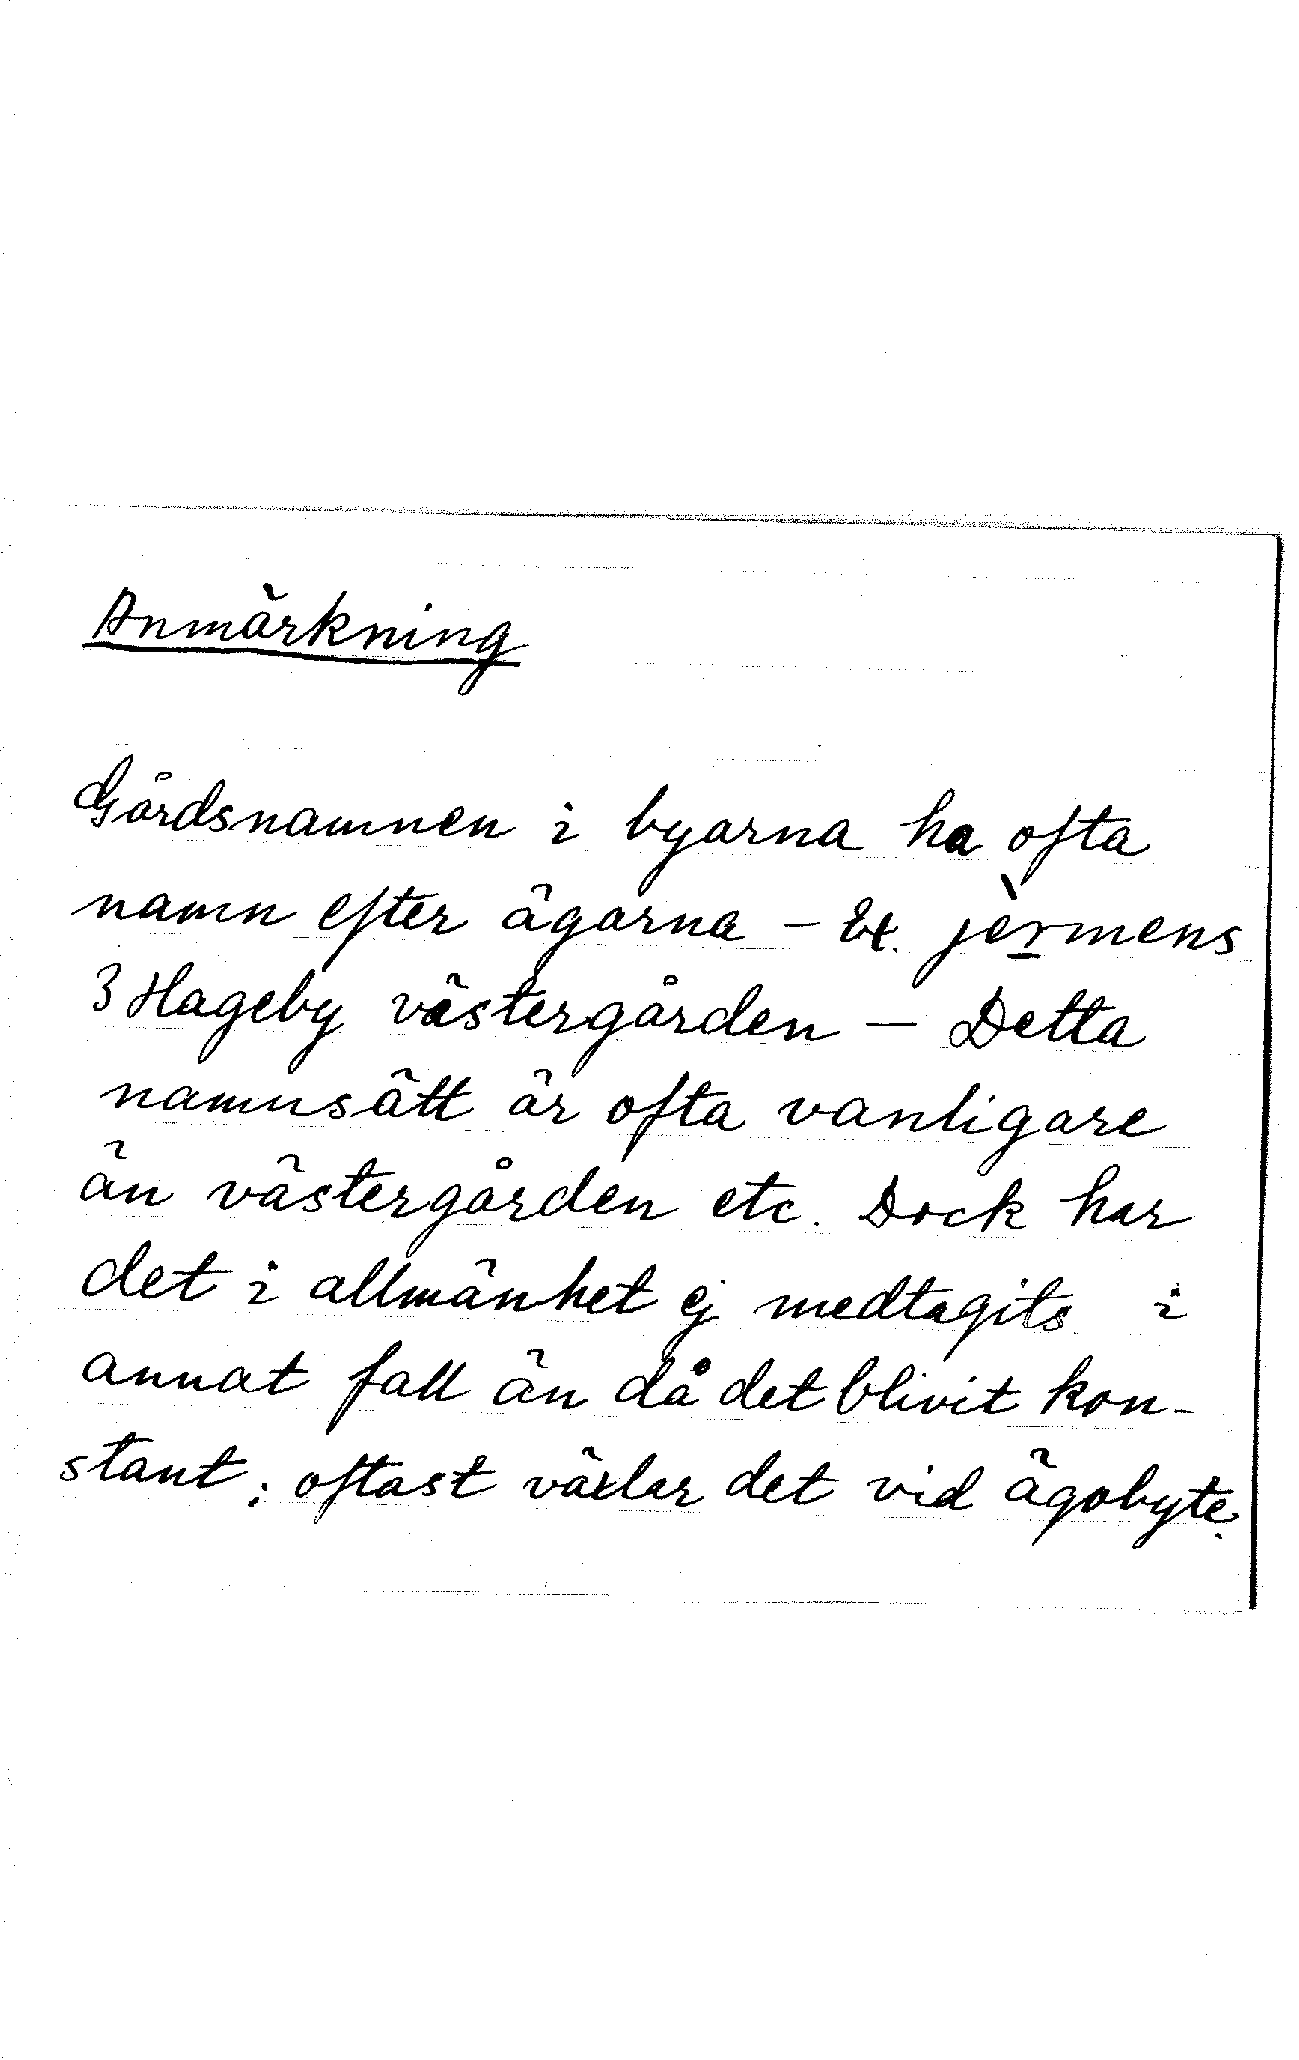 Anmärkning
Gårdsnamnen i byarna ha ofta
namn efter ägarna – Ex. jèrmens
3 Hageby västergården – Detta
namnsätt är ofta vanligare
än västergården etc. Dock har
det i allmänhet ej medtagits i
annat fall än då det blivit kon-
stant; oftast växlar det vid ägobyte.